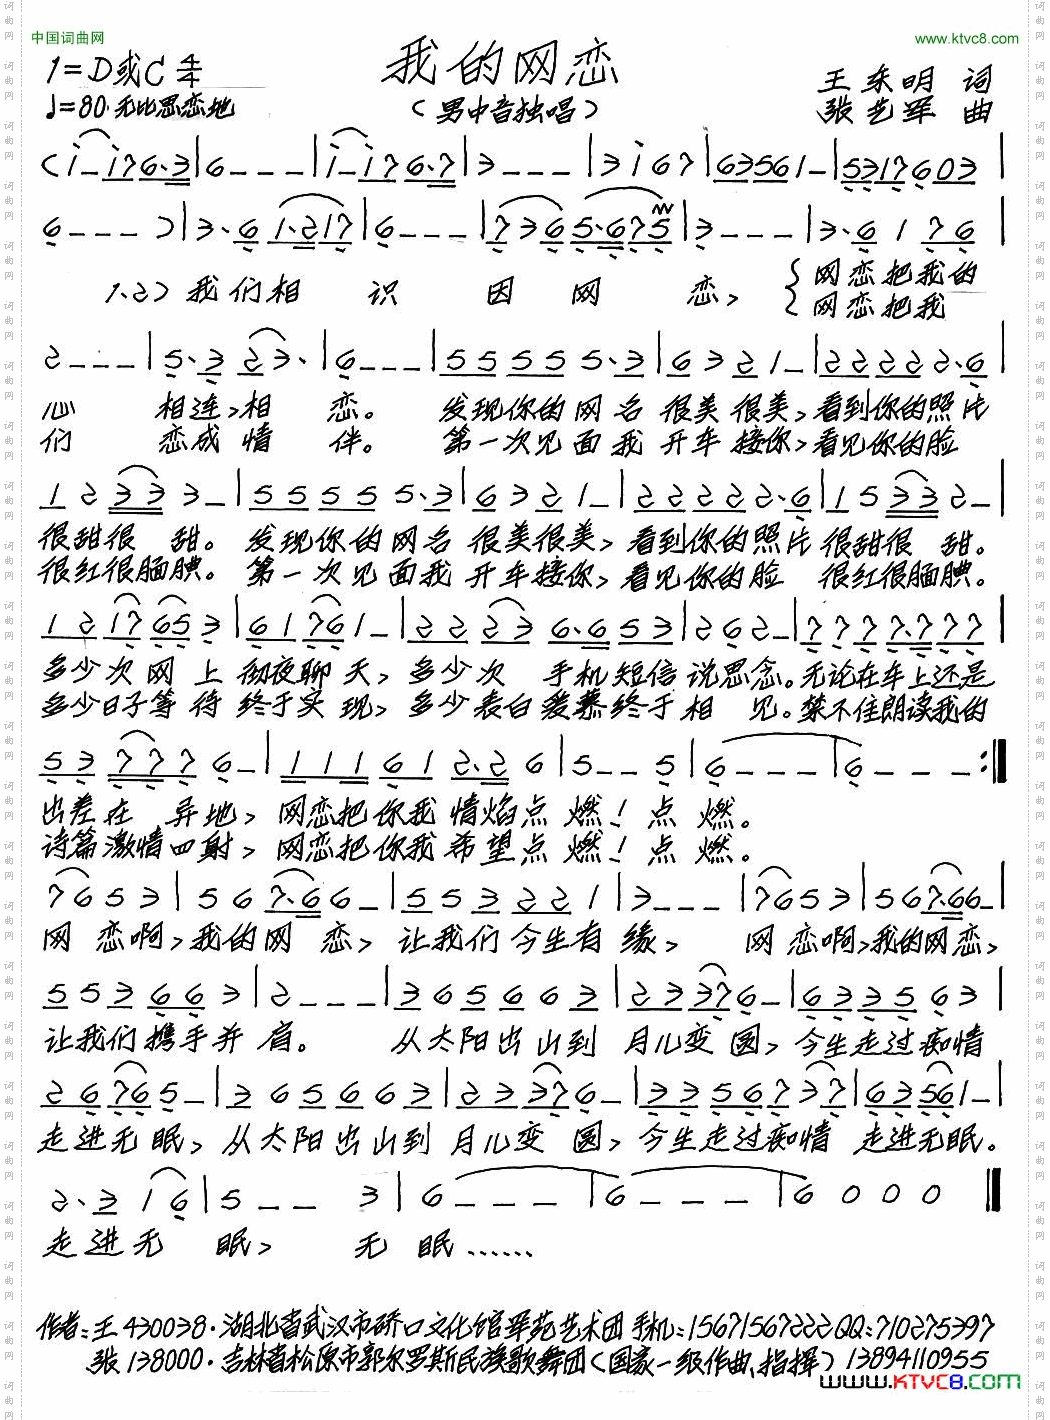 中国词曲网
www.ktvc8.com
我的网恋
1=D或C 4/4
♩=80 无比思恋地
（男中音独唱）
王东明 词
张艺军 曲
(i_i76·3|6___|i_i76·7|3___|3i67|63561_|5317603|
6___)|3·61·217|6___|7365·675|3___|3·6176|
1.2) 我们相 识 因 网 恋, {网恋把我的
网恋把我
2___|5·323·|6___|555555·3|6321_|22222·6|
心 相连,相 恋。 发现你的网名 很美很美,看到你的照片
们 恋成情 伴。 第一次见面我 开车接你,看见你的脸
12333_|55555·3|6321_|22222·6|15332_|
很甜很 甜。 发现你的网名 很美很美,看到你的照片 很甜很 甜。
很红很腼腆。 第一次见面我 开车接你,看见你的脸 很红很腼腆。
1217653|61761_|22236·653|262_|7777·777|
多少次网上彻夜聊 天,多少次 手机短信说思念。无论在车上还是
多少日子等待终于实 现,多少表白爱慕终于相 见。禁不住朗读我的
537776_|111612·26|5__5|6___|6___:||
出差在 异地,网恋把你我情焰点 燃!点 燃。
诗篇激情四射,网恋把你我希望点 燃!点 燃。
7653|567·66_|553221|3___|7653|567·66_|
网 恋啊,我的网 恋,让我们今生有 缘, 网 恋啊,我的网恋,
553663|2___|365663|23376_|633563|
让我们携手并 肩。 从太阳出山到 月儿变 圆,今生走过痴情
26765_|365663|23376_|3356737|63561_|
走进无眠,从太阳出山到 月儿变 圆,今生走过痴情 走进无眠。
2·316|5__3|6___|6___|6000||
走进无 眠, 无 眠……
作者:王430038·湖北省武汉市硚口文化馆军苑艺术团手机:15671567222QQ:710275397
张138000·吉林省松原市郭尔罗斯民族歌舞团(国家一级作曲、指挥)13894110955
www.KTVC8.com